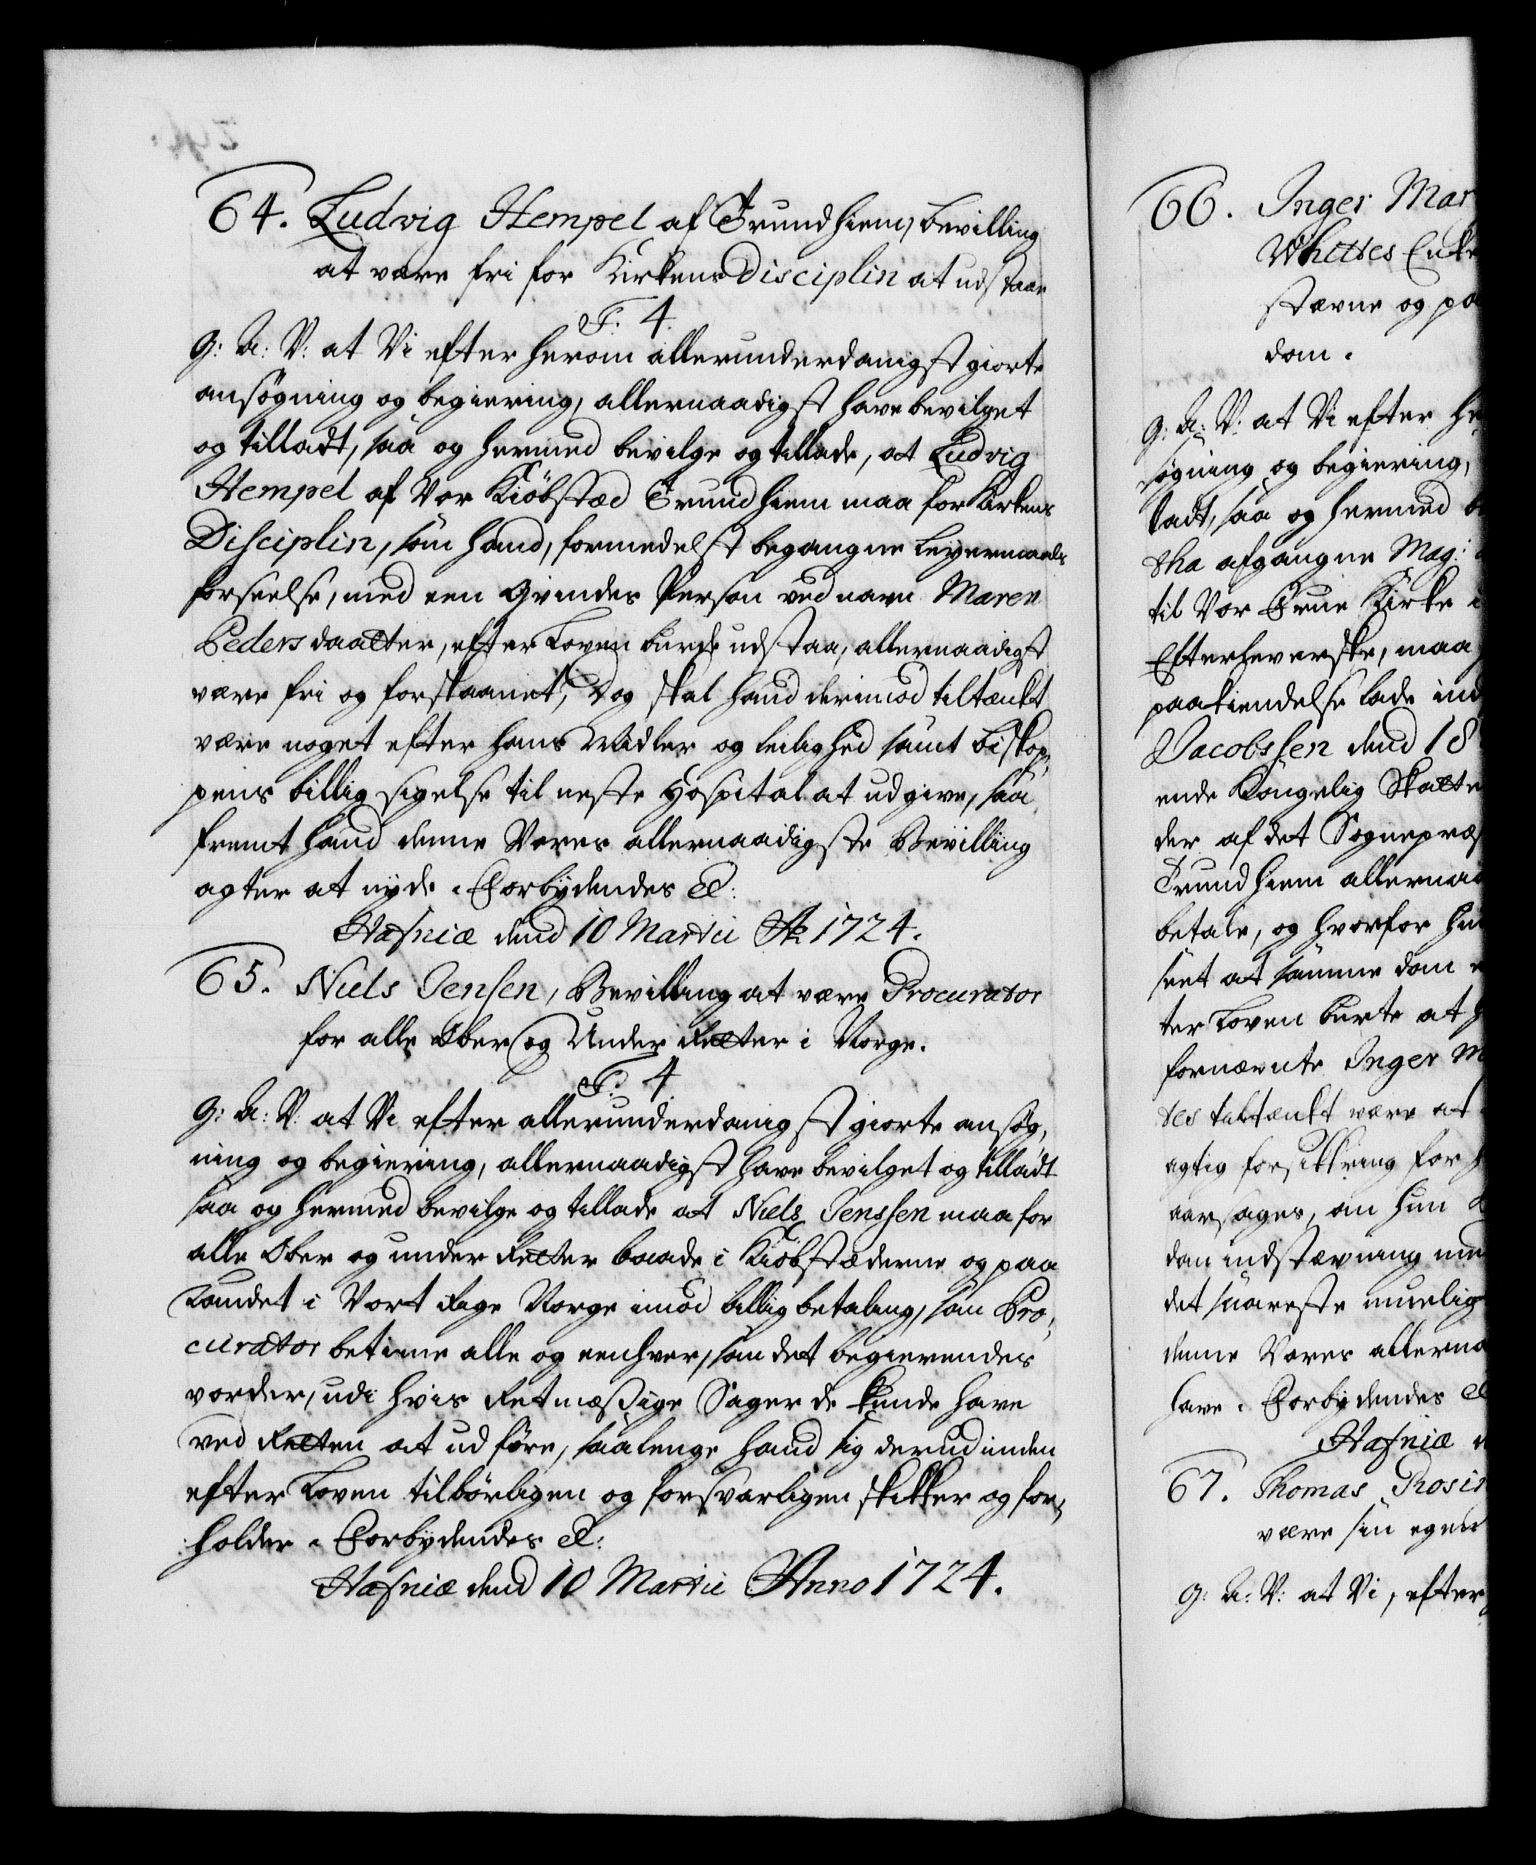 64. Ludvig Hempel af Trundhiem, bevilling
at være fri for Kirkens Disciplin at udstaae
F: 4.
G: A: V: at Vi efter herom allerunderdanigst giorte
ansøgning og begiering, allernaadigst have bevilget
og tilladt, saa og hermed bevilge og tillade, at Ludvig
Hempel af Vor Kiøbstæd Trundhiem maa for Kirkens
Disciplin, som hand, formedelst begangne Leyermaals
forseelse, med een Qvindes Person ved navn Maren
Pedersdaatter, efter Loven burde udstaa, allernaadigst
være fri og forskaanet, Dog skal hand derimod tiltænkt
være noget efter hans Midler og leilighed samt Biskop-
pens billig sigelse til neste Hospital at udgive, saa
fremt hand denne Vores allernaadigste Bevilling
agter at nyde. Forbydendes &:
Hafniæ dend 10 Martii Ao 1724.
65. Niels Jensen, Bevilling at være Procurator
for alle Ober og Under Retter i Norge.
F: 4
G: A: V: at Vi efter allerunderdanigst giorte ansøg-
ning og begiering, allernaadigst have bevilget og tilladt
saa og hermed bevilge og tillade at Niels Jenssen maa for
alle Ober og under Retter baade i Kiøbstæderne og paa
Landet i Vort Rige Norge imod billig betaling, som Pro-
curator betiene alle og eenhver, som det begierendes
vorder, udi hvis Retmæssige Sager de kunde have
ved Retten at udføre, saalenge hand sig derudinden
efter Loven tilbørligen og forsvarligen skikker og for-
holder. Forbydendes &:
Hafniæ dend 10 Martii Anno 1724.
66. Inger Mar
Whittes Enke
stævne og pa
dom.
G: A: V: at Vi efter he
søgning og begiering,
ladt, saa og hermed b
tha afgangne Mag:
til Vor Frue Kirke i
Efterleverske, maa
paakiendelse lade ind
Jacobssen dend 18
ende Kongelig Skatte
der af det Sognepræs
Trundhiem allernaa
betale, og hvorfor hu
seet at samme dom
ter Loven burte at
fornævnte Inger M
tes tiltænkt være at
agtig forsikkring for
aarsages, om hun
dan indstævning
det snareste muelig
denne Vores allerna
have. Forbydendes &
Hafniæ d
67. Thomas Rosin
være sin egen
G: A: V: at Vi, efter